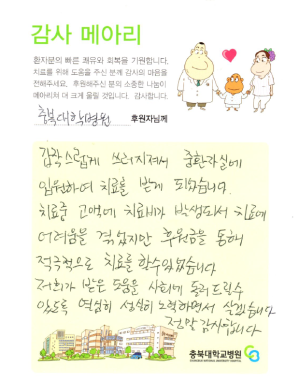 감사 메아리
환자분의 빠른 쾌유와 회복을 기원합니다.
치료를 위해 도움을 주신 분께 감사의 마음을
전해주세요. 후원해주신 분의 소중한 나눔이
메아리쳐 더 크게 울릴 것입니다. 감사합니다.
충북대학병원 후원자님께
갑작스럽게 쓰러지셔서 중환자실에
입원하여 치료를 받게 되었습니다.
치료중 고액에 치료비가 발생되서 치료에
어려움을 겪었지만 후원금을 통해
적극적으로 치료를 할수있었습니다
저희가 받은 도움을 사회에 돌려드릴수
있도록 열심히 성실히 노력하면서 살겠습니다
정말 감사합니다
충북대학교병원
CHUNGBUK NATIONAL UNIVERSITY HOSPITAL